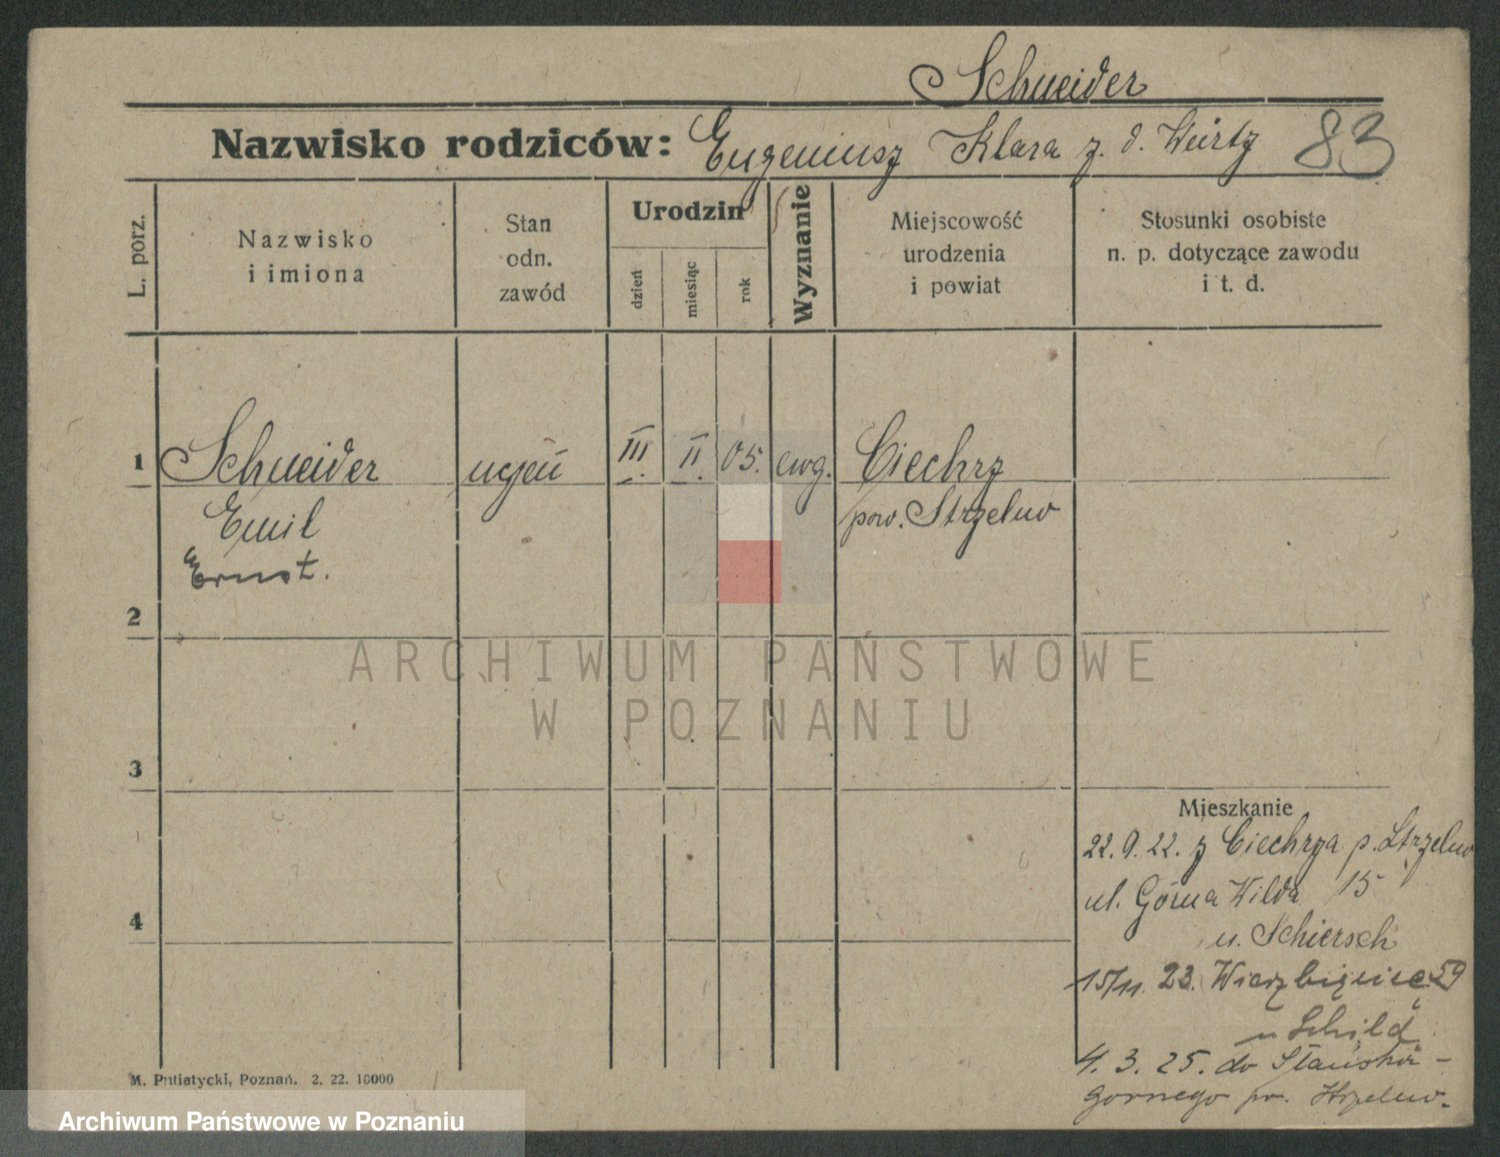 Schneider
Nazwisko rodziców: Eugeniusz Klara z. d. Weirtz 83
L. porz.
Nazwisko
i imiona
Stan
odn.
zawód
Urodzin
dzień
miesiąc
rok
Wyznanie
Miejscowość
urodzenia
i powiat
Stosunki osobiste
n. p. dotyczące zawodu
i t. d.
1 Schneider uczeń III. II. 05. ewg. Ciechrz
Emil pow. Strzelno
Ernst.
2
ARCHIWUM PAŃSTWOWE
W POZNANIU
3
Mieszkanie
22. 9. 22. z Ciechrza p. Strzelno
ul. Górna Wilda 15
4
u. Schiersch
15/11. 23. Wierzbięcice 59
u Schild
4. 3. 25. do
gornego pow. Strzelno.
M. Putiatycki, Poznań. 2. 22. 10000
Archiwum Państwowe w Poznaniu